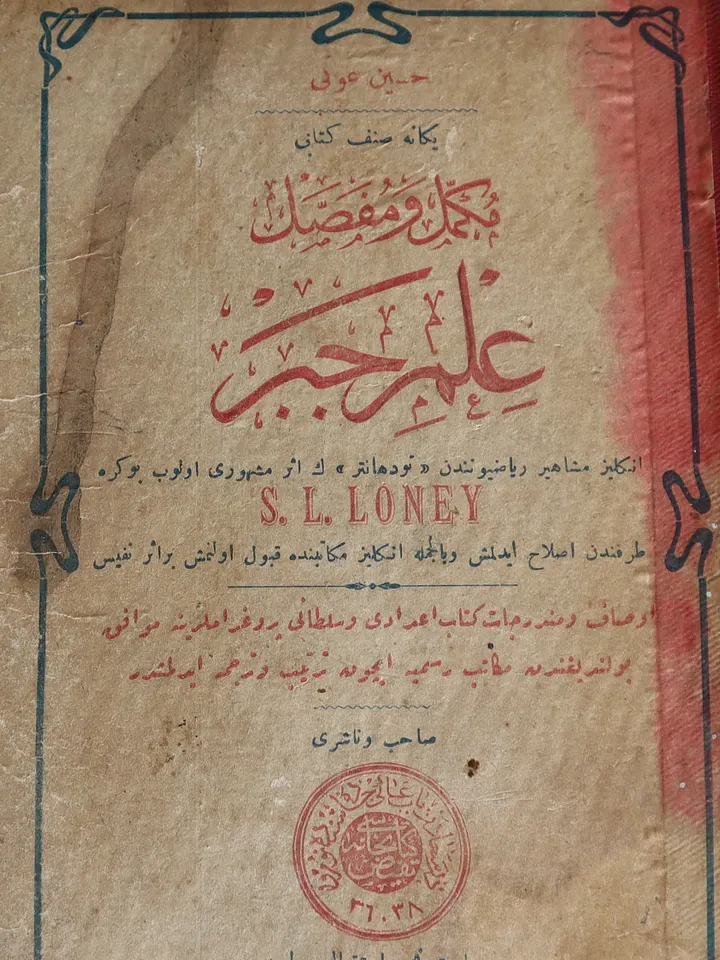 حسين عونى
يكانه صنف كتابى
مُكَمَّل وَ مُفَصَّل
عِلْمِ جَبْر
انكليز مشاهير رياضيونندن « تودهانتر » ك اثر مشهورى اولوب بوكره
S. L. LONEY
طرفندن اصلاح ايدلمش وبالجمله انكليز مكاتبنده قبول اولنمش براثر نفيس
اوصاف ومندرجات كتاب اعدادى وسلطانى پروغراملرينه موافق
بولنديغندن مكاتب رسميه ايچون ترتيب وترجمه ايدلمشدر
صاحب وناشرى
كتبخانه
فيض
٣٦،٣٨